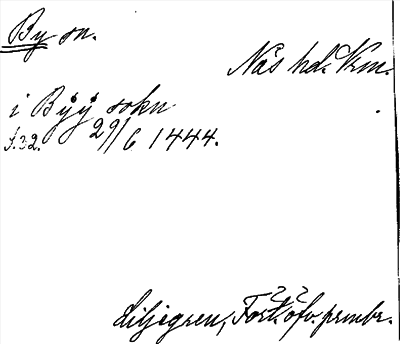 By sn.
Näs hd. Vrm.
i Bÿÿ sokn
S.32. 29/6 1444.
Liljegren, Fort. öfv. prmbr.